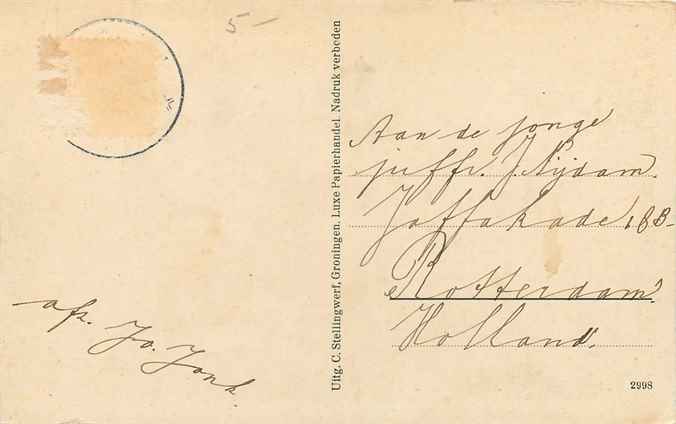 5-
afz. Jo. Jonk.
Uitg. C. Stellingwerf, Groningen. Luxe Papierhandel. Nadruk verboden
Aan de jonge
juffr. J. Nijdam.
Jaffakade 18B.
Rotterdam.
Holland.
2998